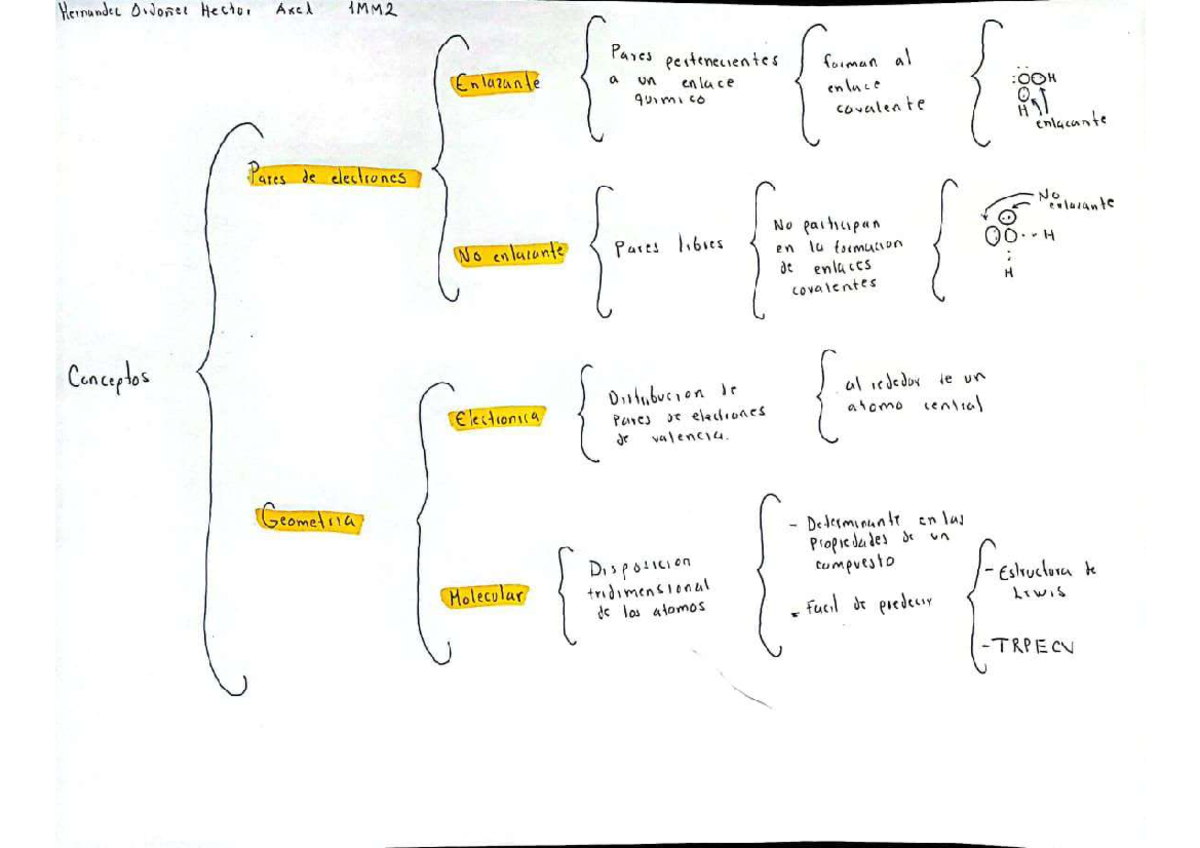 Hernandez Ordoñez Hector Axel 1MM2
Conceptos
Pares de electrones
Enlazante
Pares pertenecientes
a un enlace
quimico
forman al
enlace
covalente
H
H
enlazante
No enlazante
Pares libres
No participan
en la formacion
de enlaces
covalentes
No
enlazante
H
H
Geometria
Electronica
Distribucion de
Pares de electrones
de valencia.
al rededor de un
atomo central
Molecular
Disposicion
tridimensional
de los atomos
- Determinante en las
Propiedades de un
compuesto
- Facil de predecir
- Estructura de
Lewis
- TRPECV